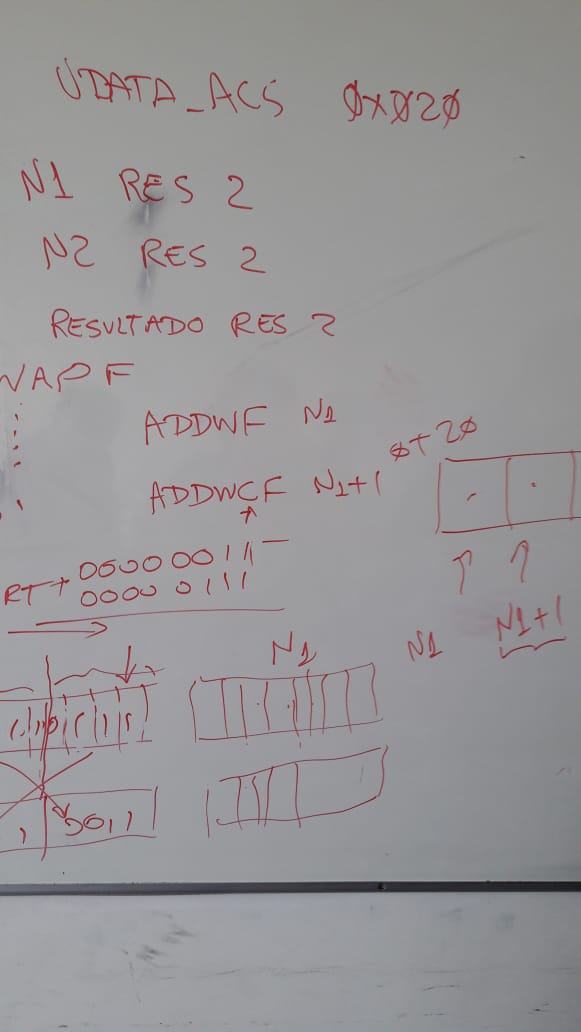 UDATA_ACS 0x020
N1 RES 2
N2 RES 2
RESULTADO RES 2
WAPF
ADDWF N1
0+20
ADDWCF N1+1
00000011
RT + 00000111
N1
N1 N1+1